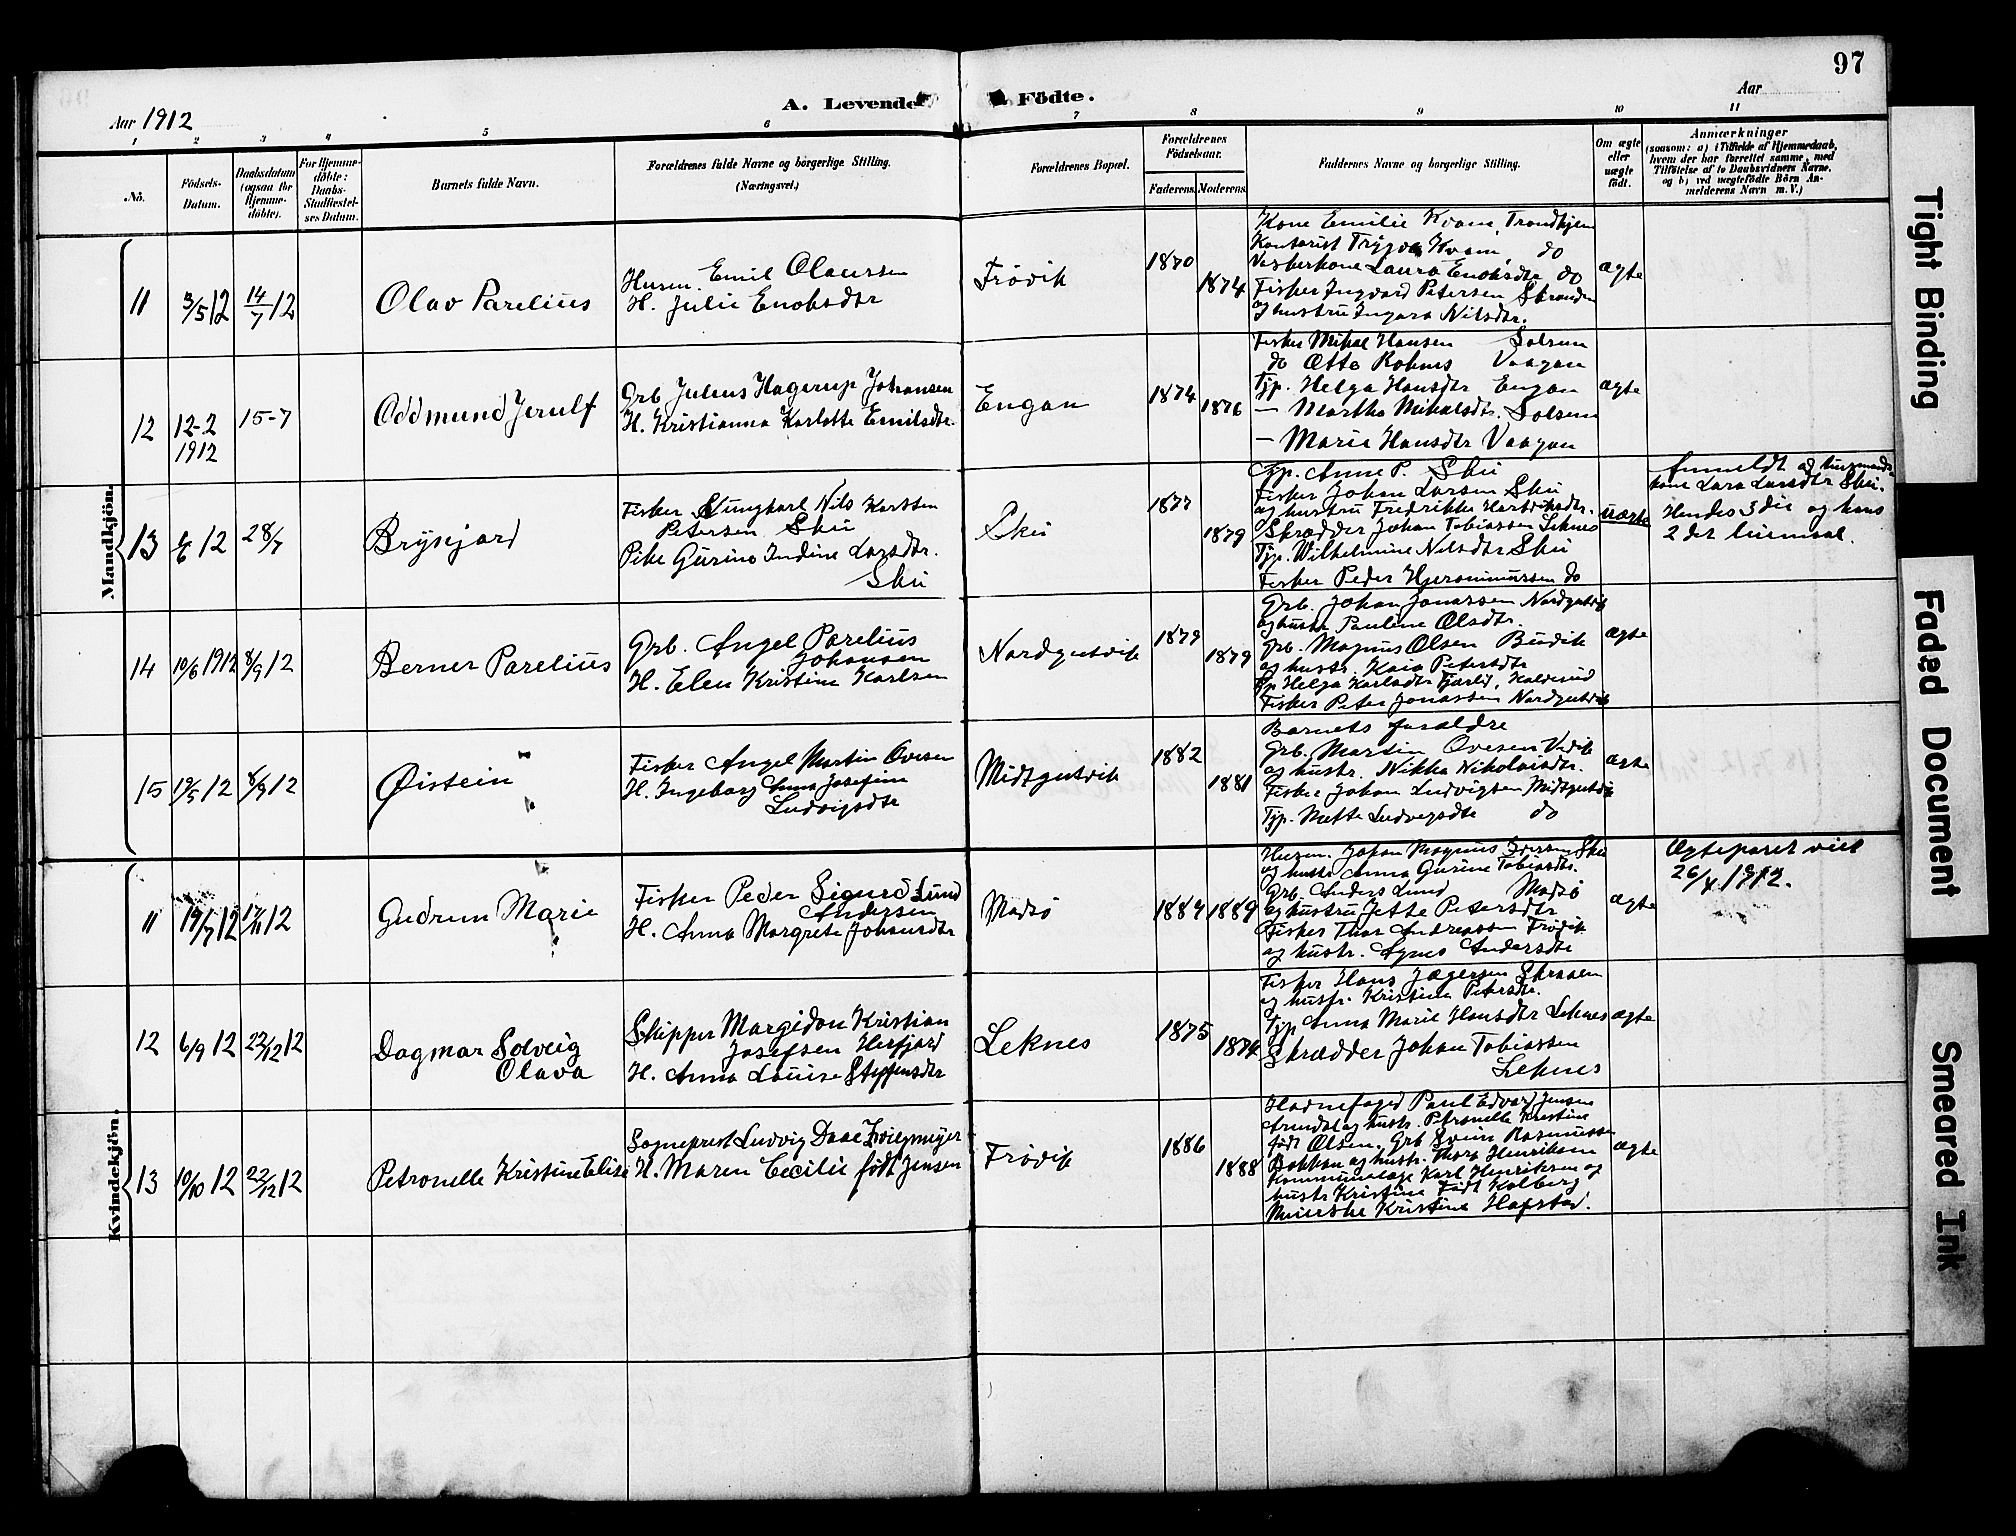 97
A. Levende Födte.
Aar 1912
Aar
1 2 3 4 5 6 7 8 9 10 11
No.
Födsels-Datum.
Daabsdatum (ogsaa for Hjemmedöbte).
For Hjemmedöbte: Daabs-Stadfæstelses Datum.
Barnets fulde Navn.
Forældrenes fulde Navne og borgerlige Stilling.
(Næringsvei.)
Forældrenes Bopæl.
Forældrenes Födselsaar.
Faderens. Moderens.
Faddernes Navne og borgerlige Stilling.
Om ægte eller uægte født.
Anmærkninger
(saasom: a) i Tilfælde af Hjemmedaab,
hvem der har forrettet samme, med
Tilföielse af to Daabsvidners Navne,
og b) ved uægtefödte Börn An-
melderens Navn m. V.)
Mandkjön.
11 3/5 12 14/7 12 Olav Parelius
Husm. Emil Olaussen
H. Julie Enoksdtr
Frövik
1870 1874
Kone Emilie Kvam, Trondhjem
Kontorist Trygve Kvam, do
Laura Enoksdtr do
Fisker Ingvard Petersen
og hustru Ingara Nilsdtr.
ægte
12 12-2 1912 15-7 Oddmund Jerulf
Grb Julius Hagerup Johansen
H. Kristianna Karlotte Emilsdtr.
Engan
1874 1876
Fisker Mikal Hansen Solsem
do Otto Rohnes Vaagan
Tjp. Helga Hansdtr Engan
— Martha Mikalsdtr. Solsem
— Marie Hansdtr Vaagan
ægte
13 12 28/7 Brynjard
Fisker Nils Karsten
Petersen Skei
Pike Gurine Indine Larsdtr.
Skei
Skei
1877 1879
Tjp. Anne P. Skei
Fisker Johan Larsen Skei
og hustru Fredrikke
Skrædder Johan Tobiassen Leknes
Tjp. Wilhelmine Nilsdtr Skei
Fisker Peder Hjeronimussen do
uægte
Anmeldt af husmands-
kone Lara Larsdtr Skei.
Hendes 3die og hans
2det leiermaal.
14 10/6 1912 8/9 12 Berner Parelius
Grb. Angel Parelius
Johansen
H. Elen Kristine Karlsen
Nordgutvik
1879 1879
Grb. Johan Jonassen Nordgutvik
og hustr. Pauline Olsdtr.
Grb. Magnus Olsen
og hustr. Kaia Petersdtr
Tjp Helga Karlsdtr
Fisker Peter Jonassen Nordgutvik
ægte
15 19/5 12 8/9 12 Øistein
Fisker Angel Martin Ovesen
H. Ingeborg Anna Josefine
Ludvigsdtr
Midtgutvik
1882 1881
Barnets forældre
Grb. Martin Ovesen
og hustr. Nikka Nikolaisdtr.
Fisker Johan Ludvigsen Midtgutvik
Tjp. Mette Ludvigsdtr do
ægte
Kvindekjön.
11 19/7 12 17/11 12 Gudrun Marie
Fisker Peder Sigurd Lund
Andersen
H. Anna Margrete Johansdtr
Madsö
1889 1889
Husm. Johan Magnus Iversen Skei
og hustr Anna Gurine Tobiasdtr.
Grb. Anders Lund Madsö
og hustru Jette Petersdtr
Fisker Thor Andreassen Frövik
og hustr. Agnes Andersdtr
ægte
Ægteparet viet
26/4 1912.
12 6/9 12 22/12 12 Dagmar Solveig
Olava
Skipper Margidon Kristian
Josefsen Herfjord
H. Anna Louise Steffensdtr
Leknes
1875 1874
Fisker Hans Jægersen
og hustr. Kristine Petersdtr.
Tjp Anna Marie Hansdtr Leknes
Skrædder Johan Tobiassen
Leknes
ægte
13 10/10 12 22/12 12 Petronelle Kristine Elise
Sogneprest Ludvig Daae Zwilgmeyer
H. Maren Cecilie født Jensen
Frövik
1886 1888
Havnefoged Paul Edvard Jensen
Arendal og hustr. Petronelle Kristine
født Olsen. Grb Svein Rasmussen
Bakkan og hustr. Thora Henriksen
Kommunelæge Karl Henriksen og
hustr Kristine født Kolberg
Kristine Hofstad.
ægte
Tight Binding
Faded Document
Smeared Ink